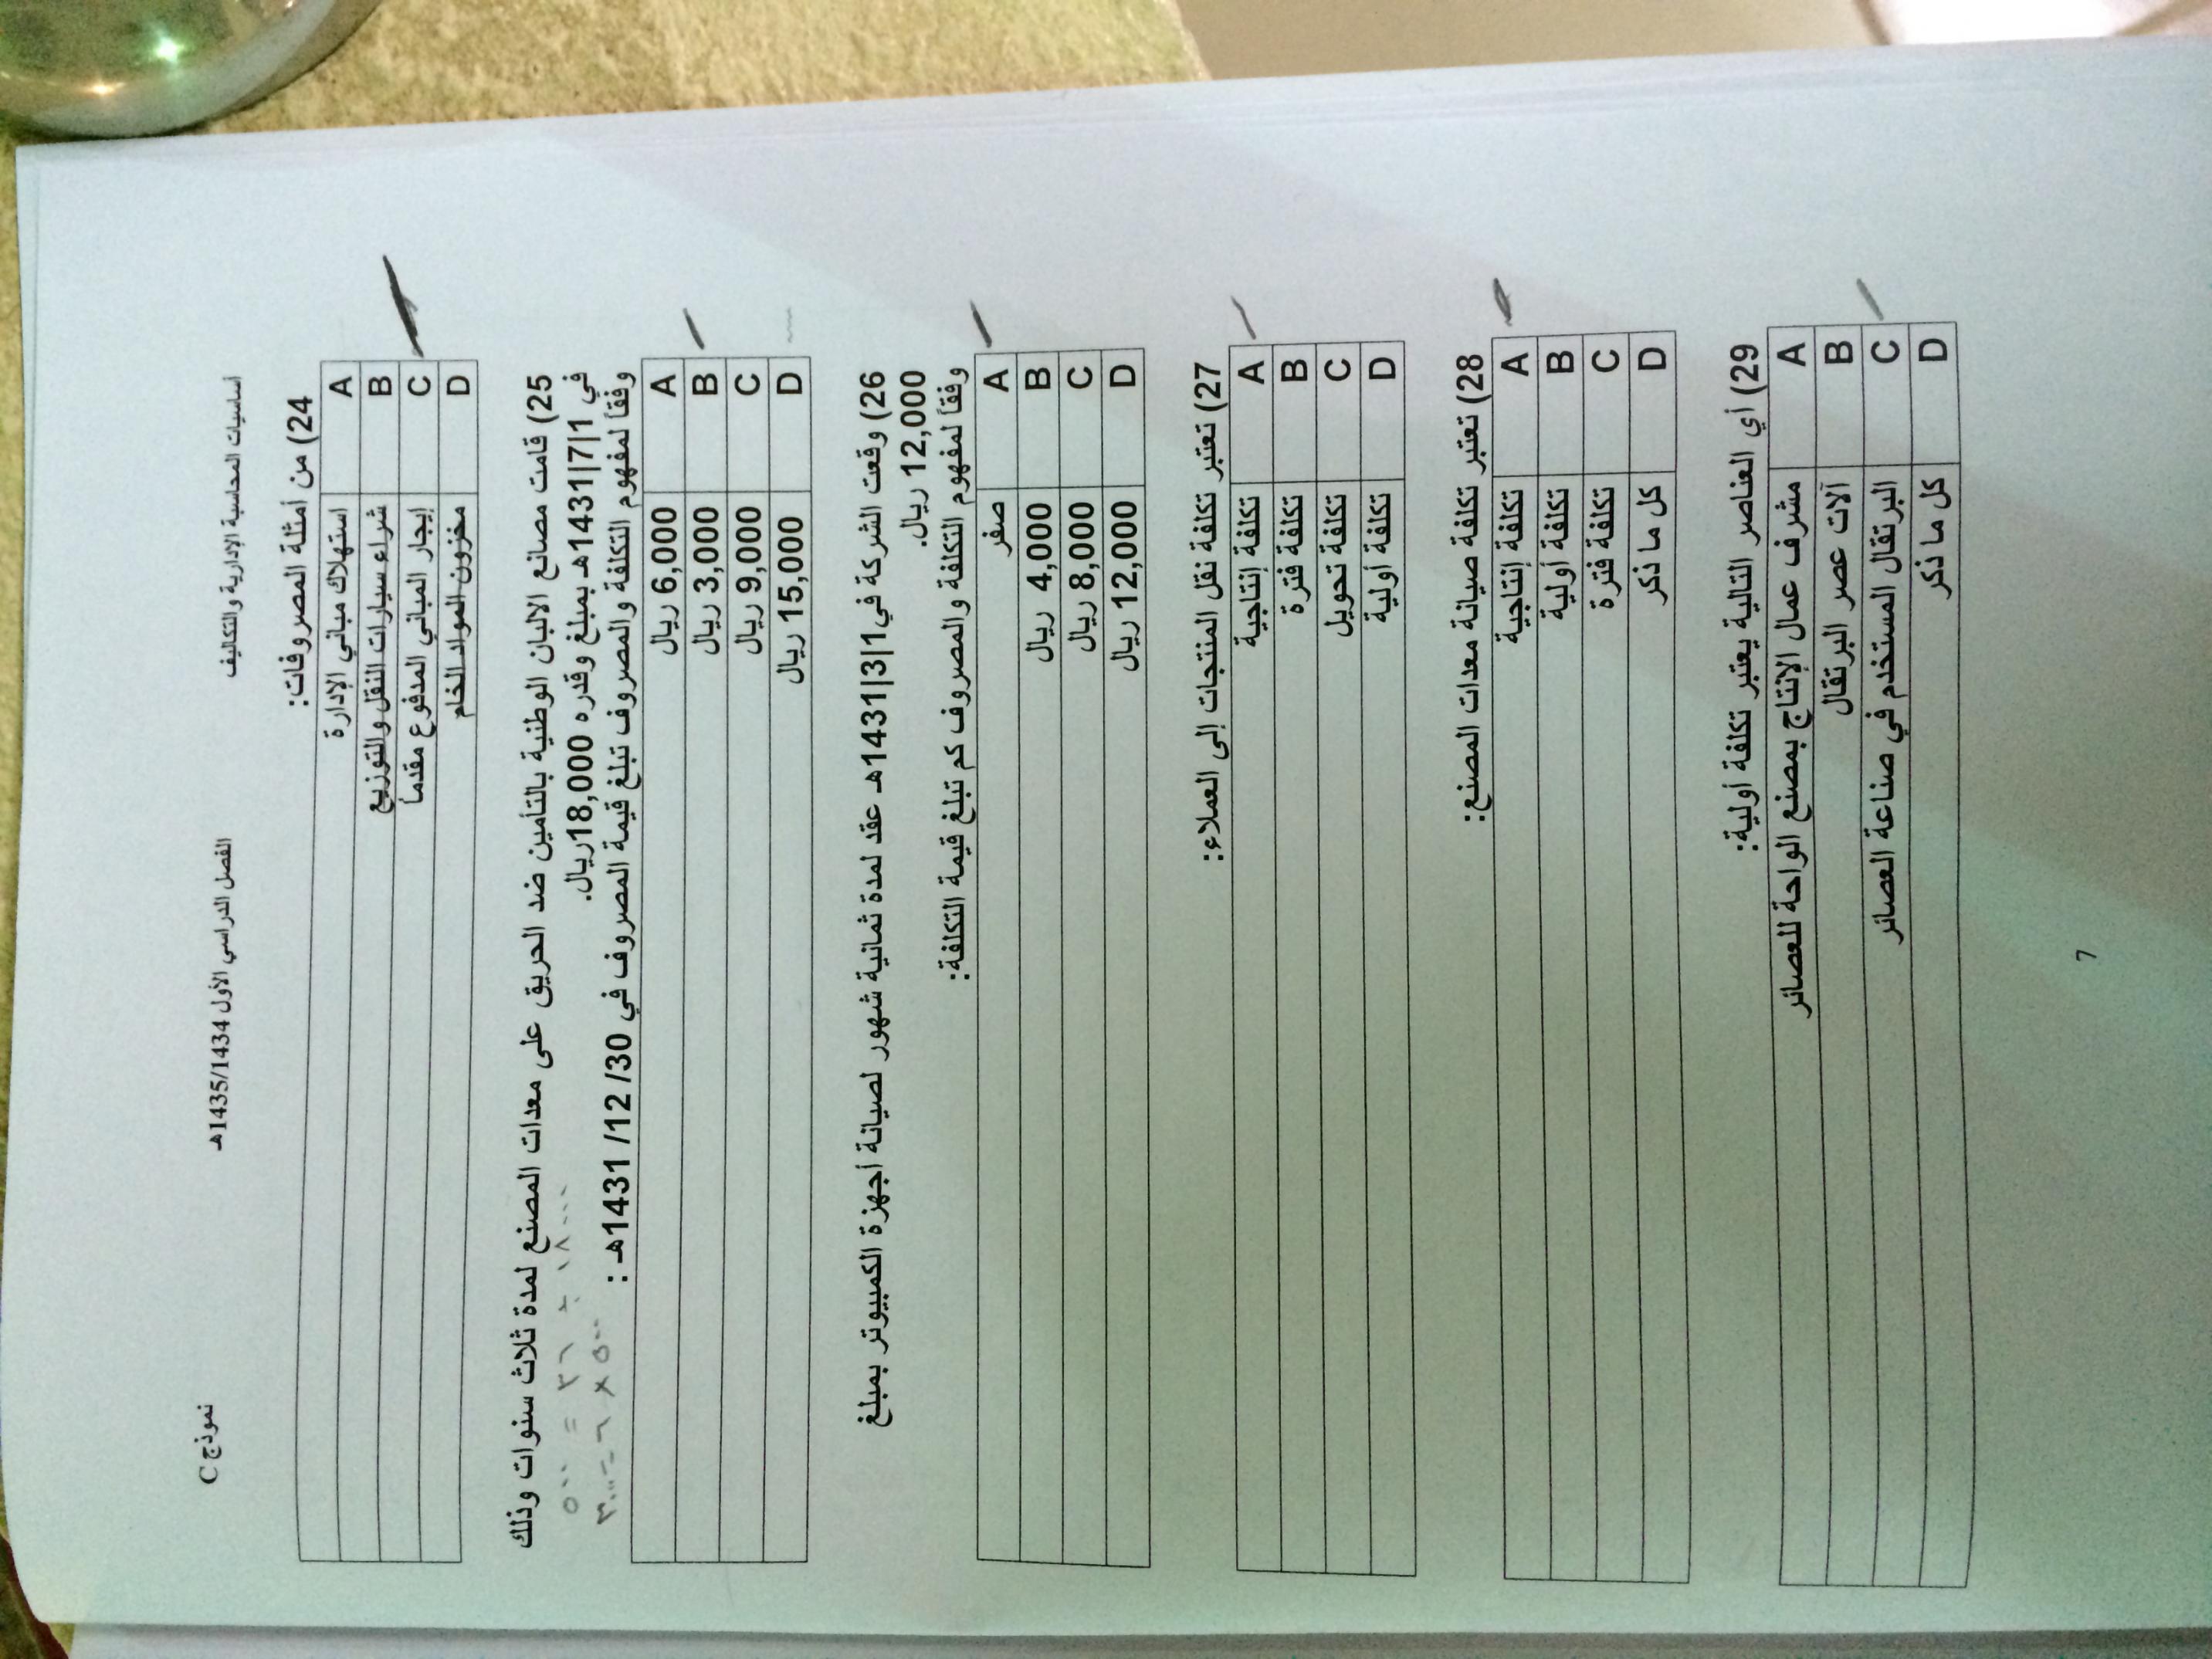 أساسيات المحاسبة الإدارية والتكاليف الفصل الدراسي الأول 1435/1434هـ نموذج C
24) من أمثلة المصروفات:
A استهلاك مباني الإدارة
B شراء سيارات النقل والتوزيع
C إيجار المباني المدفوع مقدماً
D مخزون المواد الخام
25) قامت مصانع الالبان الوطنية بالتأمين ضد الحريق على معدات المصنع لمدة ثلاث سنوات وذلك
في 1|7|1431هـ بمبلغ وقدره 18,000ريال.
١٨٠٠٠ ÷ ٣٦ = ٥٠٠
وفقاً لمفهوم التكلفة والمصروف تبلغ قيمة المصروف في 30/ 12/ 1431هـ :
٥٠٠ × ٦ = ٣٠٠٠
A 6,000 ريال
B 3,000 ريال
C 9,000 ريال
D 15,000 ريال
26) وقعت الشركة في1|3|1431هـ عقد لمدة ثمانية شهور لصيانة أجهزة الكمبيوتر بمبلغ
12,000 ريال.
وفقاً لمفهوم التكلفة والمصروف كم تبلغ قيمة التكلفة:
A صفر
B 4,000 ريال
C 8,000 ريال
D 12,000 ريال
27) تعتبر تكلفة نقل المنتجات إلى العملاء:
A تكلفة إنتاجية
B تكلفة فترة
C تكلفة تحويل
D تكلفة أولية
28) تعتبر تكلفة صيانة معدات المصنع:
A تكلفة إنتاجية
B تكلفة أولية
C تكلفة فترة
D كل ما ذكر
29) أي العناصر التالية يعتبر تكلفة أولية:
A مشرف عمال الإنتاج بمصنع الواحة للعصائر
B آلات عصر البرتقال
C البرتقال المستخدم في صناعة العصائر
D كل ما ذكر
7